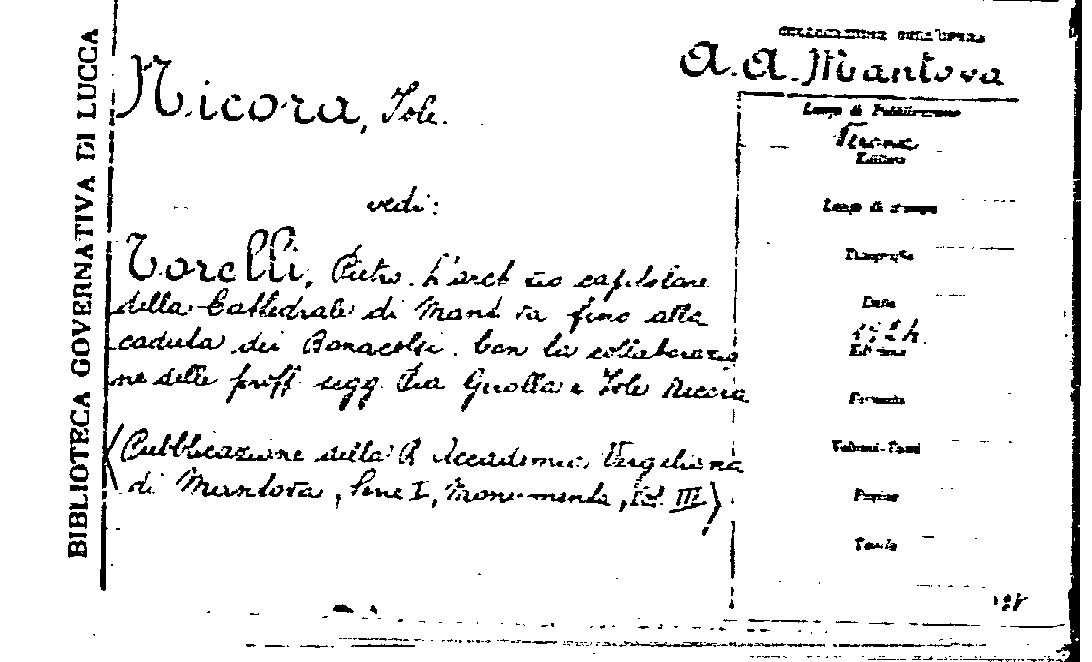 BIBLIOTECA GOVERNATIVA DI LUCCA
COLLOCAZIONE DELL'OPERA
A. A. Mantova
Nicora, Iole.
vedi:
Torelli, Pietro. L'archivio capitolare
della Cattedrale di Mantova fino alla
caduta dei Bonacolsi. Con la collaborazio
ne delle proff. segg. Pia Girolla e Iole Nicora
(Pubblicazione della R. Accademia Vergiliana
di Mantova, Serie I, Monumenta, Vol. III)
Luogo di Pubblicazione
Verona
Editore
Luogo di stampa
Tipografia
Data
1924.
Edizione
Formato
Volumi-Tomi
Pagine
Tavole